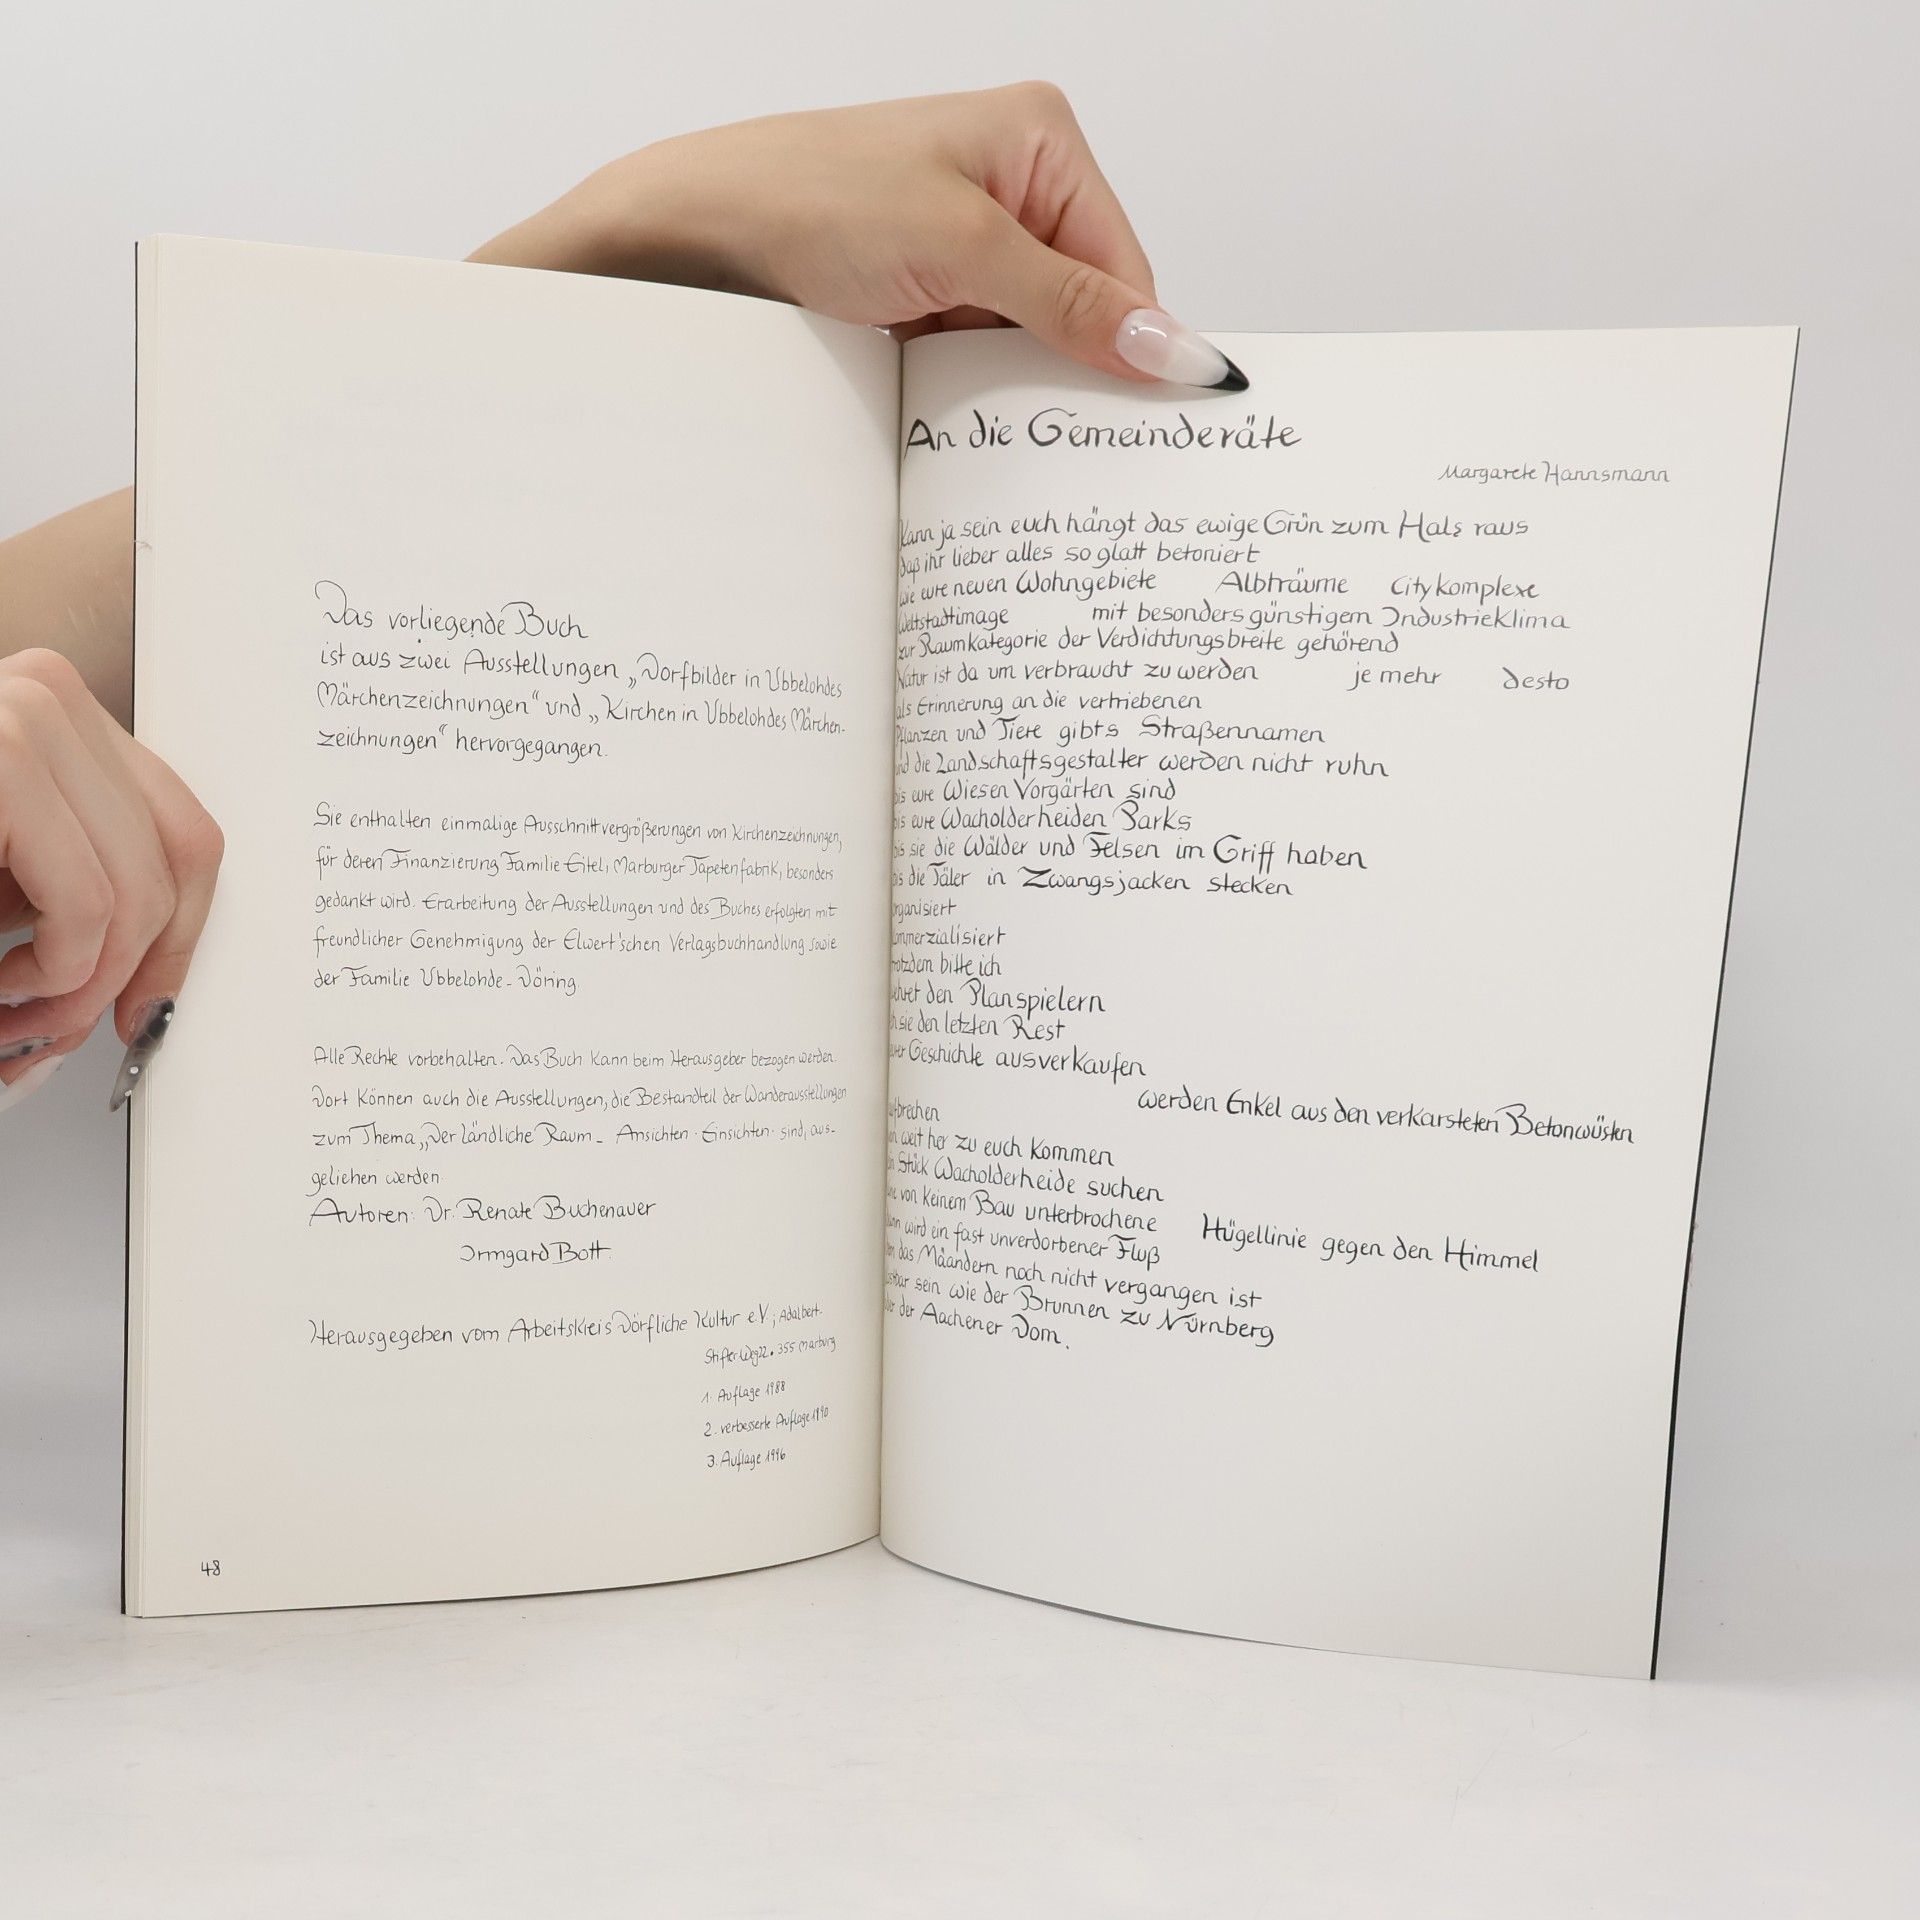 Das vorliegende Buch
ist aus zwei Ausstellungen „Dorfbilder in Ubbelohdes
Märchenzeichnungen“ und „Kirchen in Ubbelohdes Märchen-
zeichnungen“ hervorgegangen.
Sie enthalten einmalige Ausschnittvergrößerungen von Kirchenzeichnungen,
für deren Finanzierung Familie Eitel, Marburger Tapetenfabrik, besonders
gedankt wird. Erarbeitung der Ausstellungen und des Buches erfolgten mit
freundlicher Genehmigung der Elwert'schen Verlagsbuchhandlung sowie
der Familie Ubbelohde-Döring.
Alle Rechte vorbehalten. Das Buch kann beim Herausgeber bezogen werden.
Dort können auch die Ausstellungen, die Bestandteil der Wanderausstellungen
zum Thema „Der ländliche Raum - Ansichten · Einsichten · sind, aus-
geliehen werden.
Autoren: Dr. Renate Buchenauer
Irmgard Bott.
Herausgegeben vom Arbeitskreis Dörfliche Kultur e.V.; Adalbert-
Stifter Weg 22. 355 Marburg
1. Auflage 1988
2. verbesserte Auflage 1990
3. Auflage 1996
48
An die Gemeinderäte
Margarete Hannsmann
Kann ja sein euch hängt das ewige Grün zum Hals raus
daß ihr lieber alles so glatt betoniert
wie eure neuen Wohngebiete Albträume Citykomplexe
Weltstadtimage mit besonders günstigem Industrieklima
zur Raumkategorie der Verdichtungsbreite gehörend
Natur ist da um verbraucht zu werden je mehr desto
als Erinnerung an die vertriebenen
Pflanzen und Tiere gibts Straßennamen
und die Landschaftsgestalter werden nicht ruhn
bis eure Wiesen Vorgärten sind
bis eure Wacholderheiden Parks
bis sie die Wälder und Felsen im Griff haben
bis die Täler in Zwangsjacken stecken
organisiert
kommerzialisiert
trotzdem bitte ich
wehret den Planspielern
eh sie den letzten Rest
eurer Geschichte ausverkaufen
werden Enkel aus den verkarsteten Betonwüsten
aufbrechen
von weit her zu euch kommen
ein Stück Wacholderheide suchen
eine von keinem Bau unterbrochene Hügellinie gegen den Himmel
dann wird ein fast unverdorbener Fluß
dem das Mäandern noch nicht vergangen ist
kostbar sein wie der Brunnen zu Nürnberg
oder der Aachener Dom.